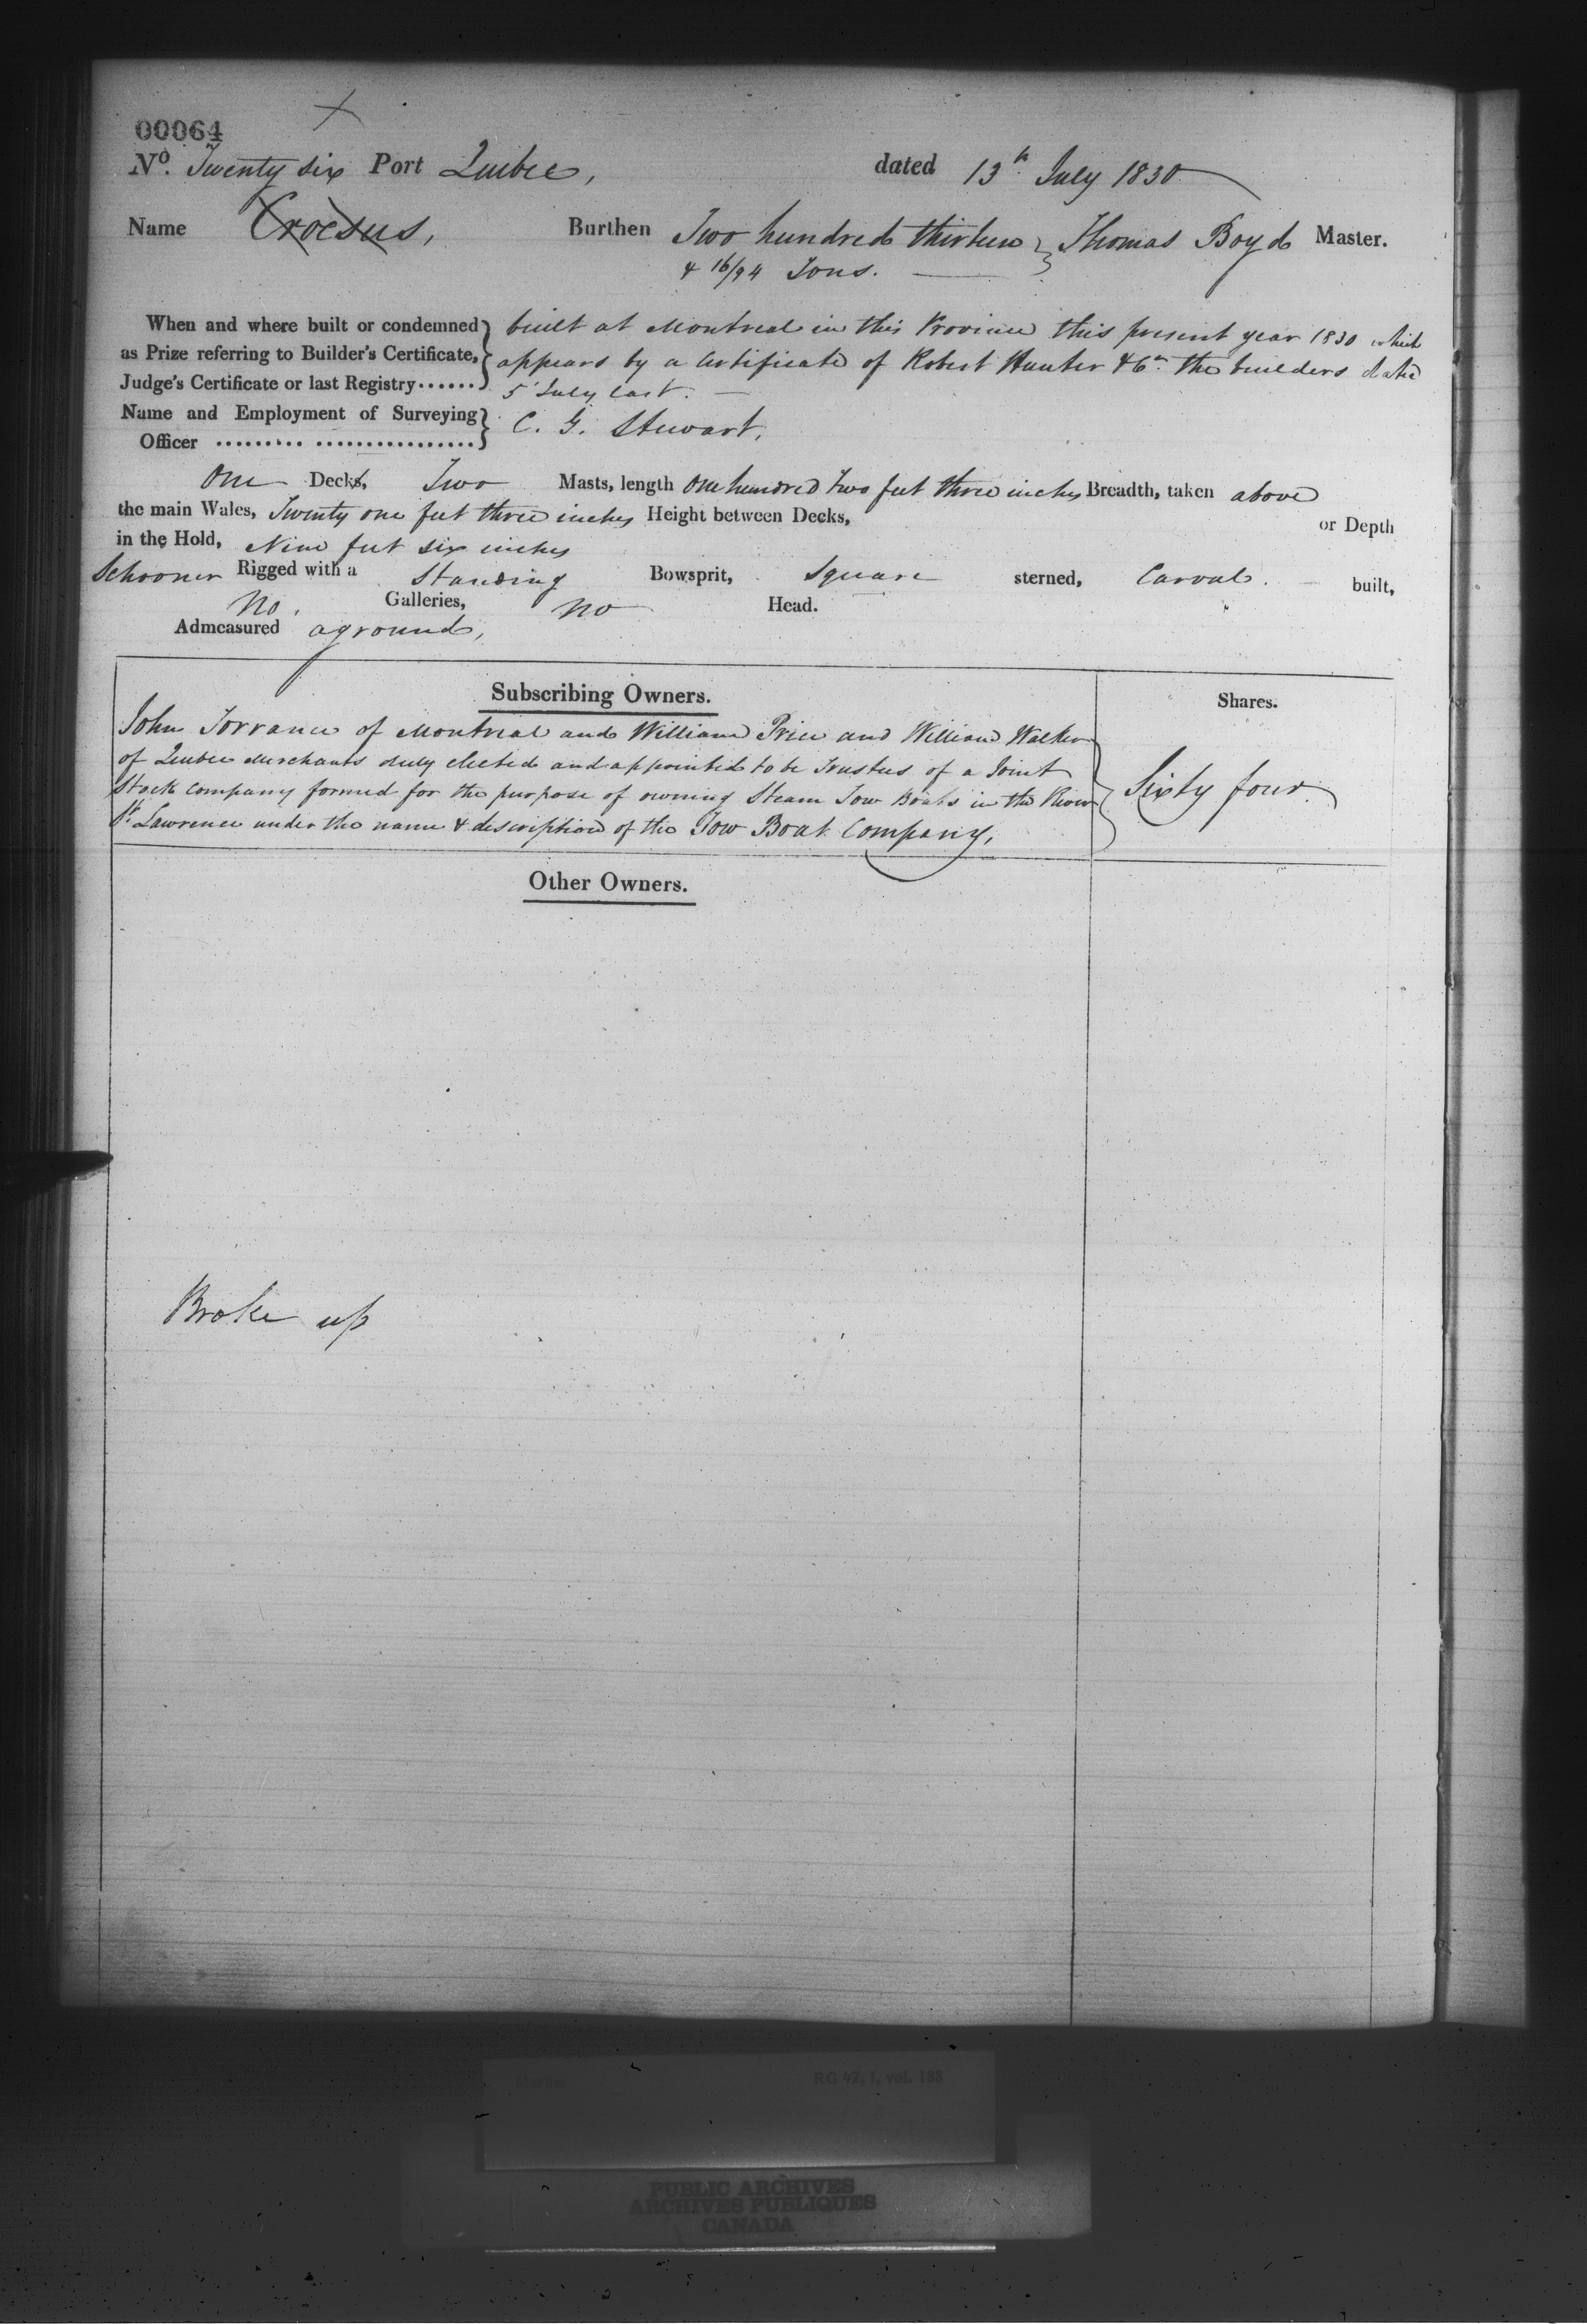 00064
No. Twenty six Port Quebec, dated 13th July 1830
Name Croesus, Burthen Two hundred thirteen } Thomas Boyd Master.
& 16/94 Tons.
When and where built or condemned } built at Montreal in this Province this present year 1830 which
as Prize referring to Builder's Certificate, appears by a Certificate of Robert Hunter & Co. the builders dated
Judge's Certificate or last Registry...... 5 July last.
Name and Employment of Surveying } C. G. Stewart.
Officer ......... ................
One Decks, Two Masts, length One hundred two feet three inches Breadth, taken above
the main Wales, Twenty one feet three inches Height between Decks, or Depth
in the Hold, Nine feet six inches
Schooner Rigged with a Standing Bowsprit, Square sterned, Carvel built,
No. Galleries, No Head.
Admeasured aground,
Subscribing Owners. Shares.
John Torrance of Montreal and William Price and William Walker
of Quebec Merchants duly elected and appointed to be Trustees of a Joint
Stock Company formed for the purpose of owning Steam Tow Boats in the River } Sixty four.
St. Lawrence under the name & description of the Tow Boat Company,
Other Owners.
Broke up
RG 42, I, vol. 188
PUBLIC ARCHIVES
ARCHIVES PUBLIQUES
CANADA